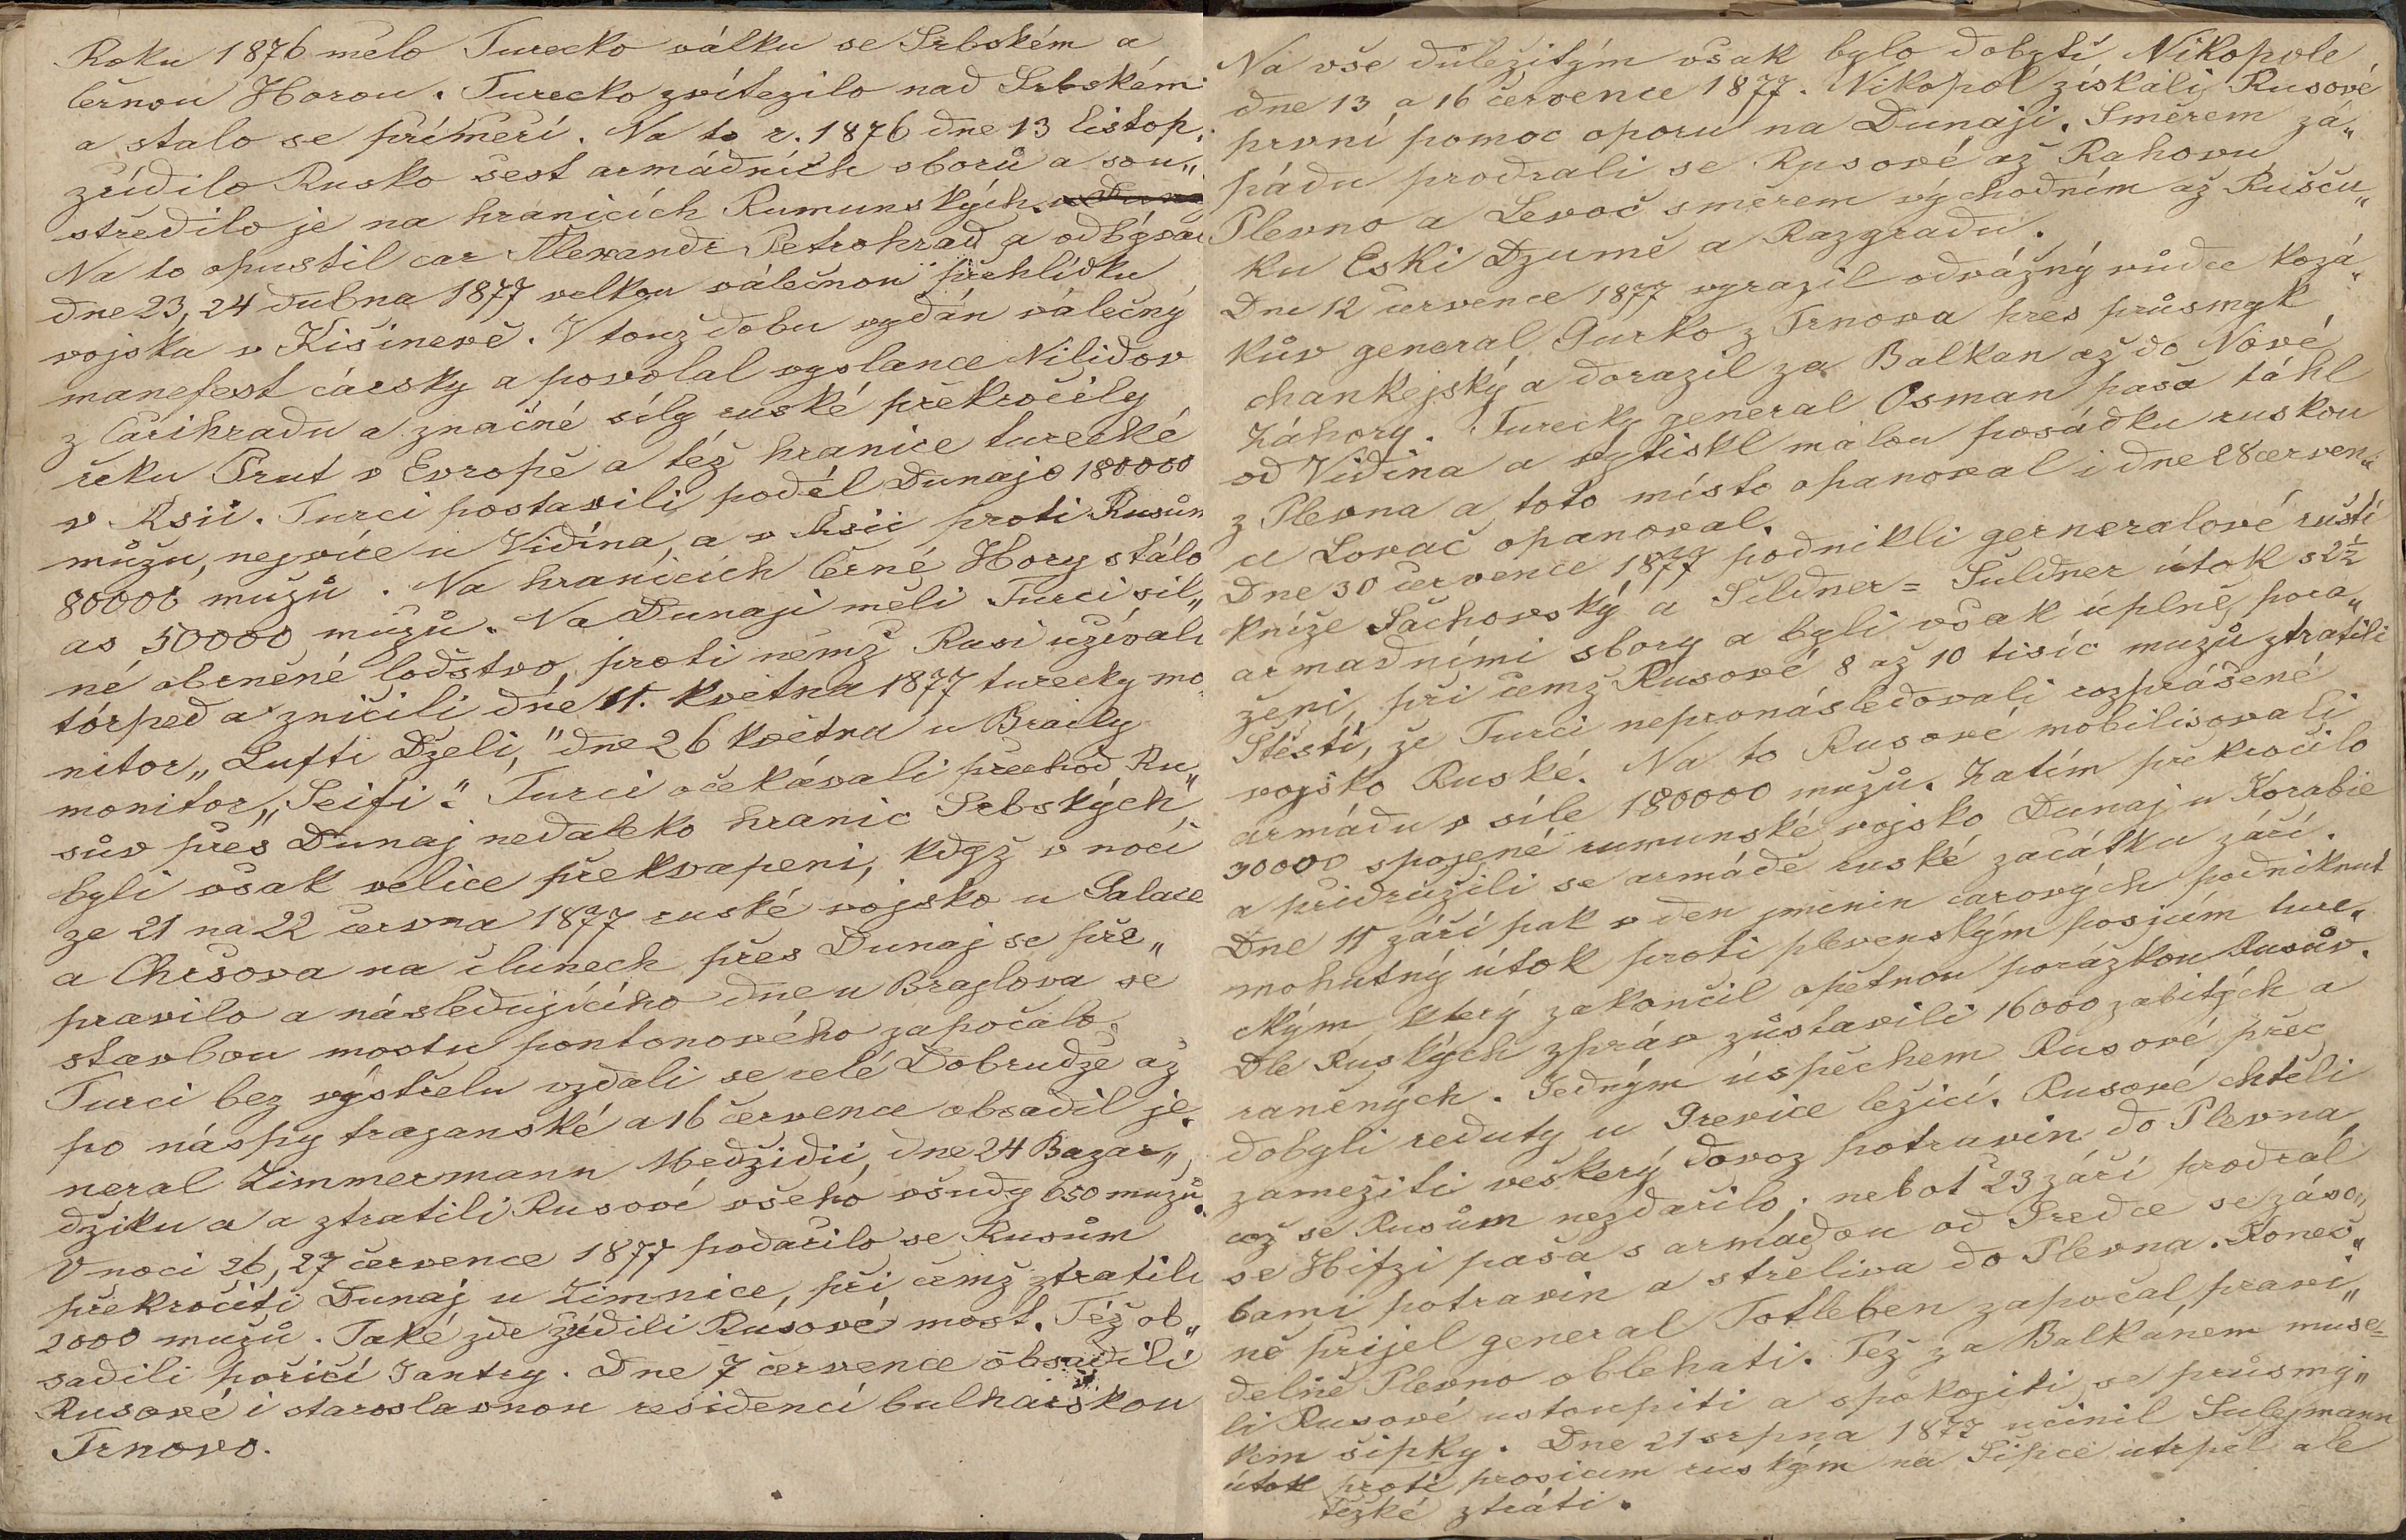 Roku 1876 mělo Turecko válku se Srbském a
černou Horou. Turecko zvítezilo nad Srbském
a stalo se přímeří. Na to r. 1876 dne 13 listop.
zřídilo Rusko šest armádních sborů a sou„
středilo je na hranicích Rumunských.
Na to opustil car Alexandr Petrohrad a odbýval
dne 23, 24 dubna 1877 velkou válečnou přehlídku
vojska v Kišinevě. V touž dobu vydán válečný
manefest cársky a povolal vyslance Nilidov
z Cařihradu a značné síly ruské překročily
řeku Prut v Evropě a též hranice turecké
v Asii. Turci postavili podél Dunaje 180000
můžu, nejvíce u Vidína, a v Asii proti Rusům
80000 mužů. Na hranicích černé Hory stálo
as 50000 mužů. Na Dunaji měli Turci sil„
né obrněné lodstvo, proti němž Rusi užívali
tórped a zničili dne 11. května 1877 turecky mo„
nitor „Lufti Dželi," dne 26 května u Braily
monitor „Seifi". Turci očekávali přechod Ru„
sův přes Dunaj nedaleko hranic Srbských,
byli však velice překvapeni, když v noci
ze 21 na 22 června 1877 ruské vojsko u Galace
a Chršova na člunech přes Dunaj se pře„
pravilo a následujícího dne u Braglova se
stavbou mostu pontonového započalo.
Turci bez výstřelu vzdali se celé Dobrudže až
po náspy trajanské a 16 července obsadil je„
neral Zimmermann Medžidii, dne 24 Bazar„
džiku a a ztratili Rusové všeho všudy 650 mužů.
V noci 26, 27 července 1877 podařilo se Rusům
překročiti Dunaj u Zimnice, při čemž ztratili
2000 mužů. Také zde zřídili Rusové most. Též ob„
sadili pořičí Jantry. Dne 7 července obsadili
Rusové i staroslavnou residencí bulharskou
Trnovo.
Na vše důležitým však bylo dobytí Nikopole
dne 13 a 16 července 1877. Nikopol získali Rusové
první pomoc oporu na Dunaji. Směrem zá„
pádu prodrali se Rusové až Rahovu
Plevno a Levoč směrem východním až Rušču„
ku Eski Dzumě a Razgradu.
Dne 12 července 1877 vyrazil odvážný vůdce kozá„
kův general Gurko z Trnova přes průsmyk
chankejský a dorazil za Balkan až do Nové
Záhory. Turecky general Osman paša táhl
od Vidina a vytiskl málou posádku ruskou
z Plevna a toto místo opanoval i dne 28 červen„
ce Lovač opanoval.
Dne 30 července 1877 podnikli gerneralové rušti
kníže Šachovský a Šildner = Šuldner útok s 2½
armadními sbory a byli však úplně pora„
ženi, při čemž Rusové 8 až 10 tisíc mužů ztratili
Štěstí, že Turci nepronásledovali rozprášené
vojsko Ruské. Na to Rusové mobilisovali
armádu v síle 180000 mužů. Zatím překročilo
30000 spojené rumunské vojsko Dunaj u Korabie
a přidružili se armádě ruské začátku září.
Dne 11 září pak v den jmenin carových podniknut
mohutný útok proti plevenským posicím ture„
ckým, který zakončil opětnou porážkou Rusův.
Dle Ruských zpráv zůstavili 16000 zabitých a
raněných. Jedným úspěchem Rusové přec
dobyli reduty u Grevice ležící. Rusové chtěli
zamežiti veškerý dovoz potravin do Plevna,
což se Rusům nezdařilo; nebot 23 září prodral
se Hifzi paša s armádou od Sredce se záso„
bami potravin a střeliva do Plevna. Koneč„
ně přijel general Totleben započal pravi„
delně Plevno oblehati. Též za Balkánem muse=
li Rusové ustoupiti a spokojiti se průsmy„
kem šipky. Dne 21 srpna 1877 učinil Sulejmann
útok proti prosicem ruským na Šipce utrpěl ale
těžké ztráti.